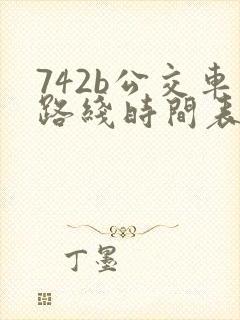 742b公交車
路綫時間表
丁墨